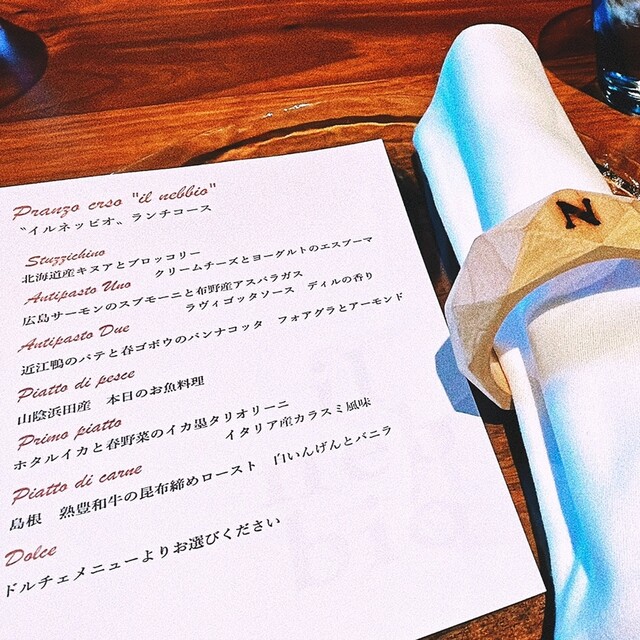 Pranzo crso "il nebbio"
〝イルネッビオ〟ランチコース
Stuzzichino
北海道産キヌアとブロッコリー
クリームチーズとヨーグルトのエスプーマ
Antipasto Uno
広島サーモンのスプモーニと布野産アスパラガス
ラヴィゴッタソース ディルの香り
Antipasto Due
近江鴨のパテと春ゴボウのパンナコッタ フォアグラとアーモンド
Piatto di pesce
山陰浜田産 本日のお魚料理
Primo piatto
ホタルイカと春野菜のイカ墨タリオリーニ
イタリア産カラスミ風味
Piatto di carne
島根 熟豊和牛の昆布締めロースト 白いんげんとバニラ
Dolce
ドルチェメニューよりお選びください
N